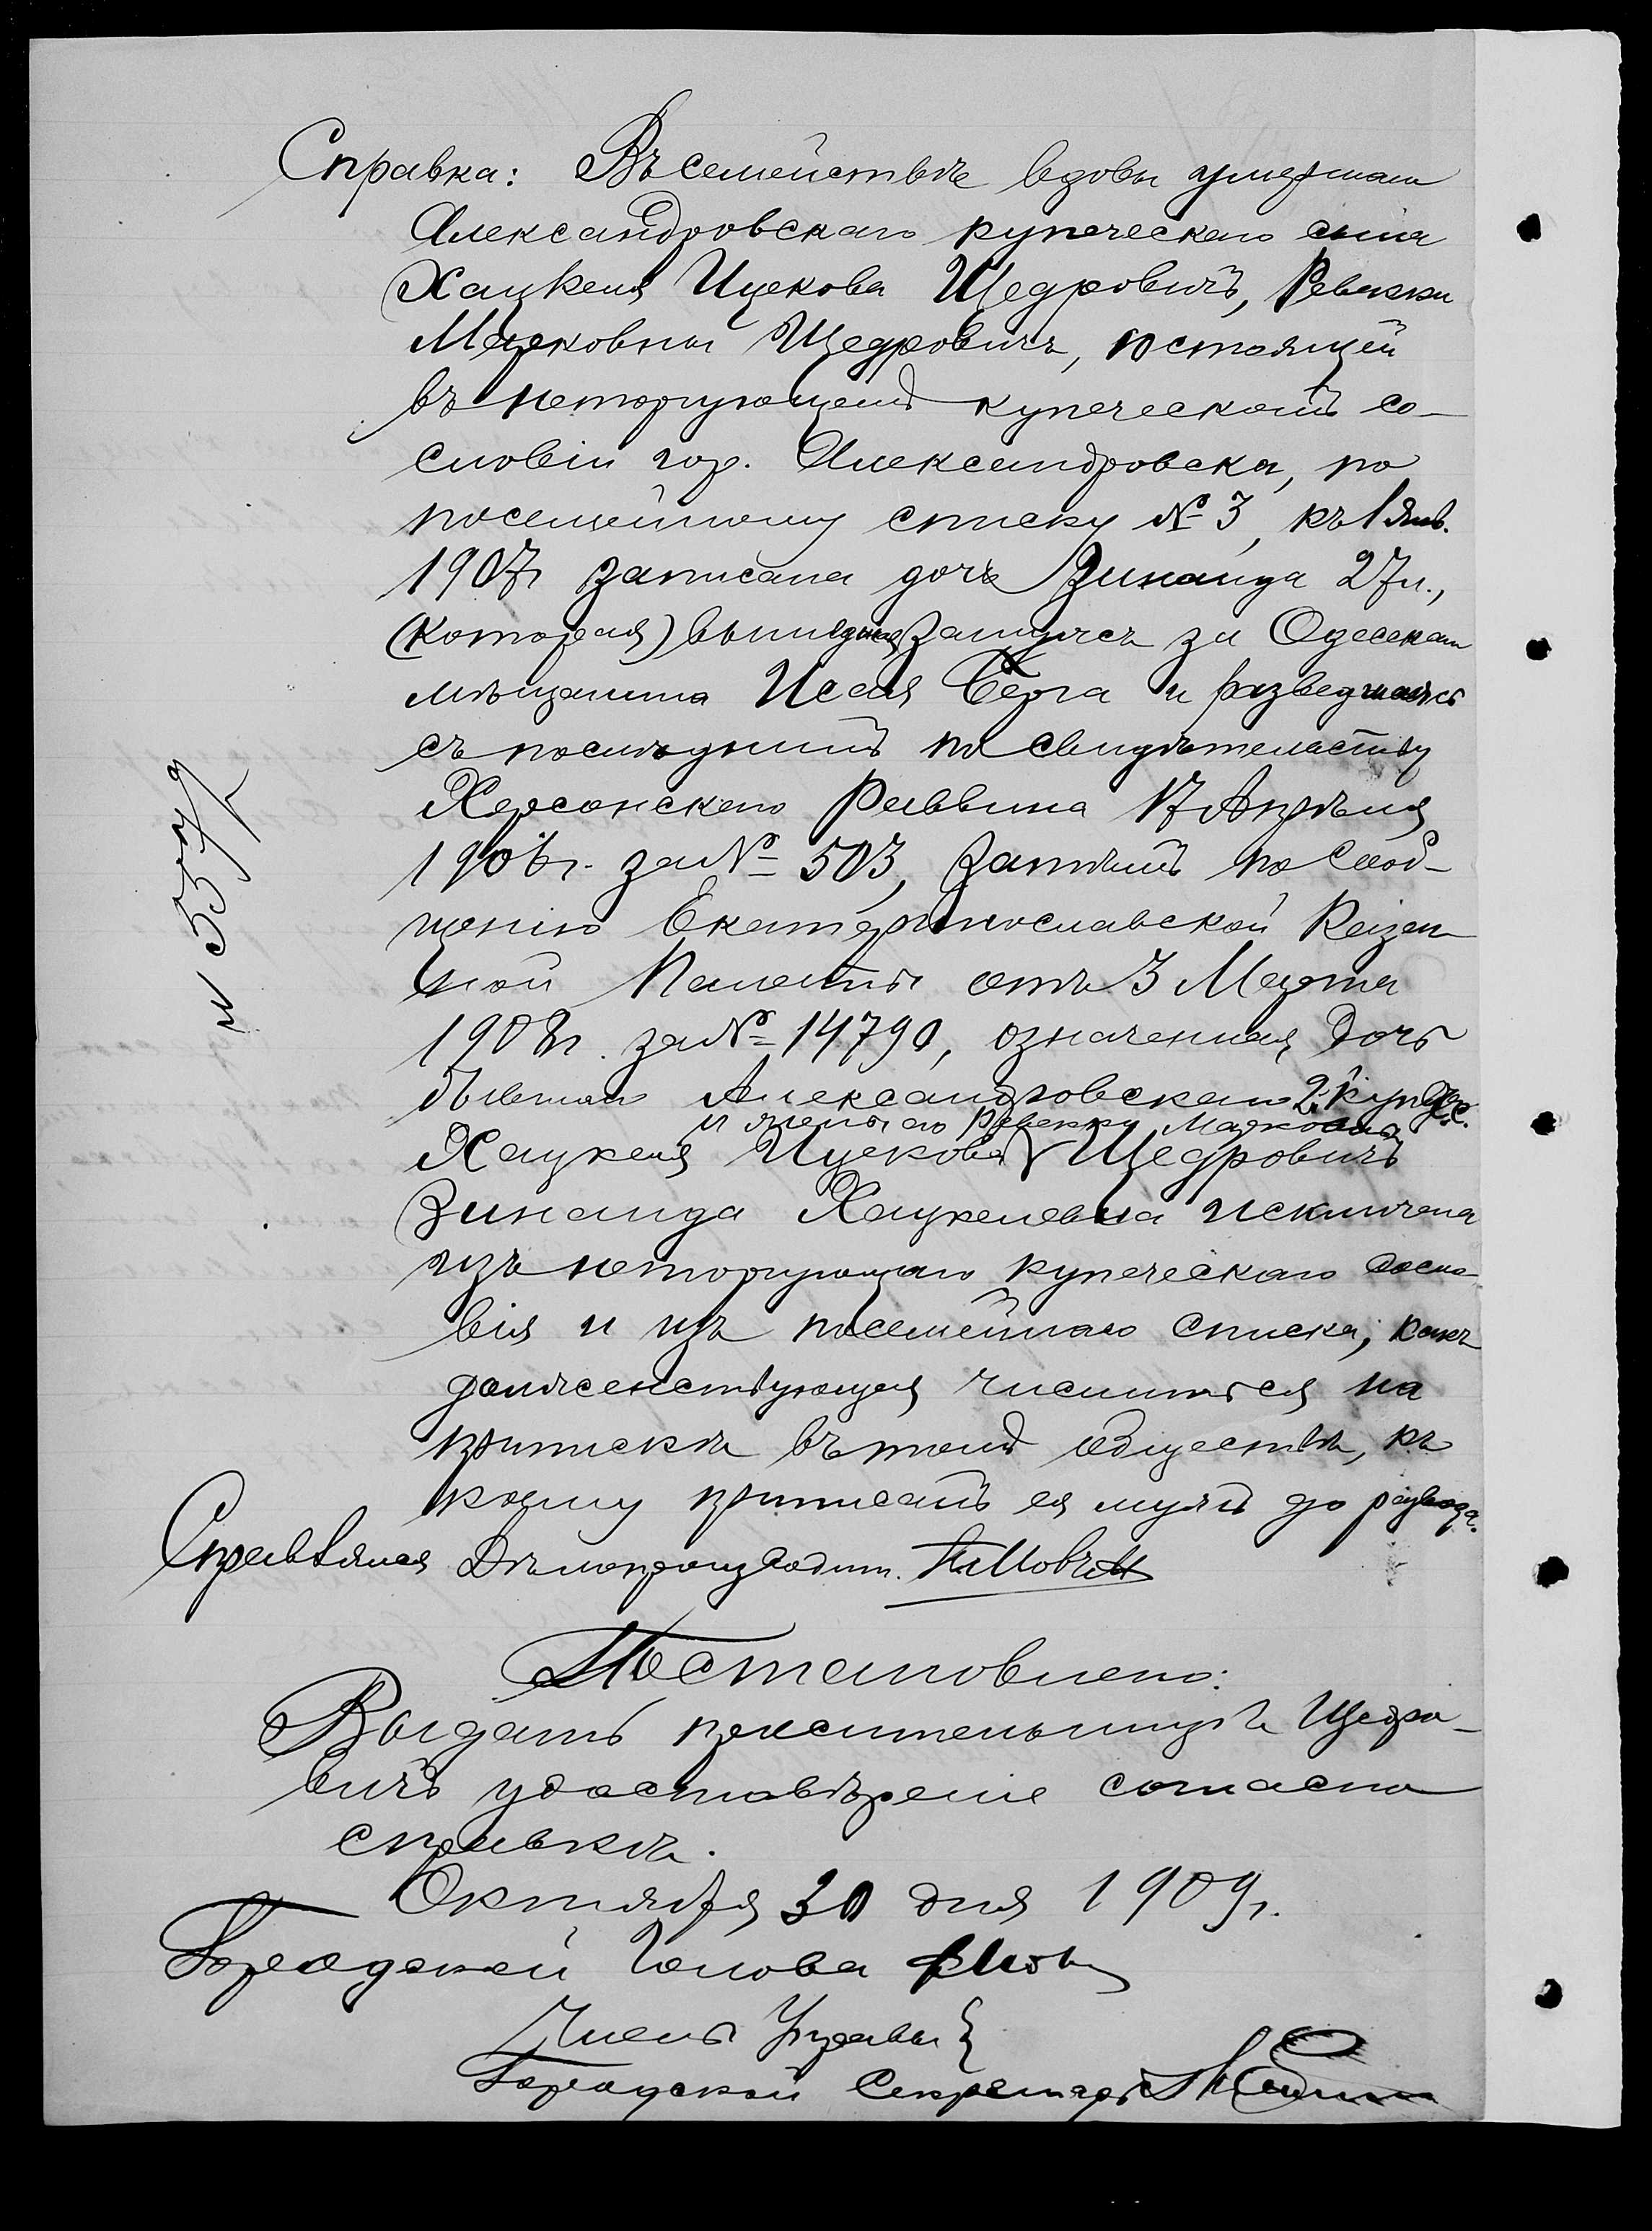 Справка: Въ семействѣ вдовы умершаго
Александровскаго купеческаго сына
Хацкеля Ицкова Щедровичъ, Ревекки
Марковны Щедровичъ, состоящей
въ неторгующемъ купеческомъ со-
словіи гор. Александровска, по
посемейному списку № 3, къ 1 янв.
1907 г. записана дочь Зинаида 27 л.,
(которая) вышедшая замужъ за Одесскаго
мѣщанина Исая Берга и разведшаяся
съ послѣднимъ по свидѣтельству
Херсонскаго Раввина 17 Апрѣля
1906 г. за № 503, затѣмъ по сооб-
щенію Екатеринославской Казен-
ной Палаты отъ 3 Марта
1908 г. за № 14790, означенная дочь
бывшаго Александровскаго 2 г. купца
и жены его Ревекки Марковны
Хацкеля Ицкова Щедровичъ
Зинаида Хацкелевна исключена
изъ неторгующаго купеческаго сосло-
вія и изъ посемейнаго списка, какъ
долженствующая числиться на
припискѣ въ томъ обществѣ, къ
коему приписанъ ея мужъ до развода.
Справлялся Дѣлопроизводит.
№ 5579
Постановлено:
Выдать просительницѣ Щедро-
вичъ удостовѣреніе согласно
справкѣ.
Октября 30 дня 1909 г.
Городской Голова
Члены Управы
Городской Секретарь